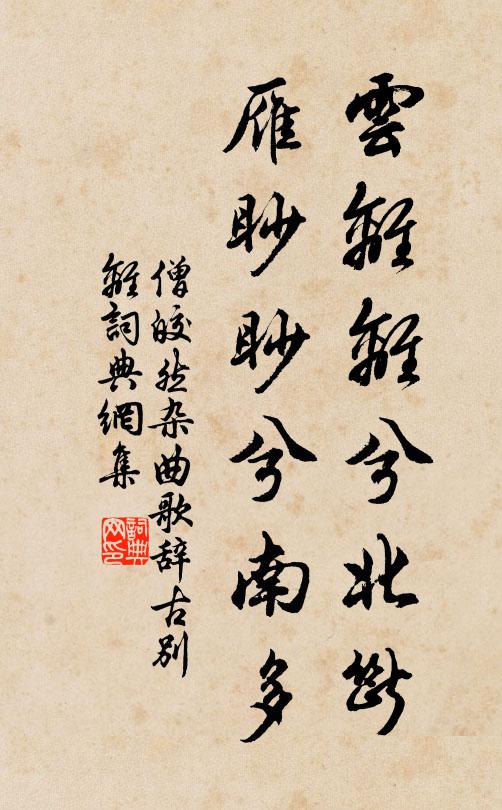 雲離離兮北斷
雁眇眇兮南多
僧皎然杂曲歌辞古别
離詞典網集
詞典网印